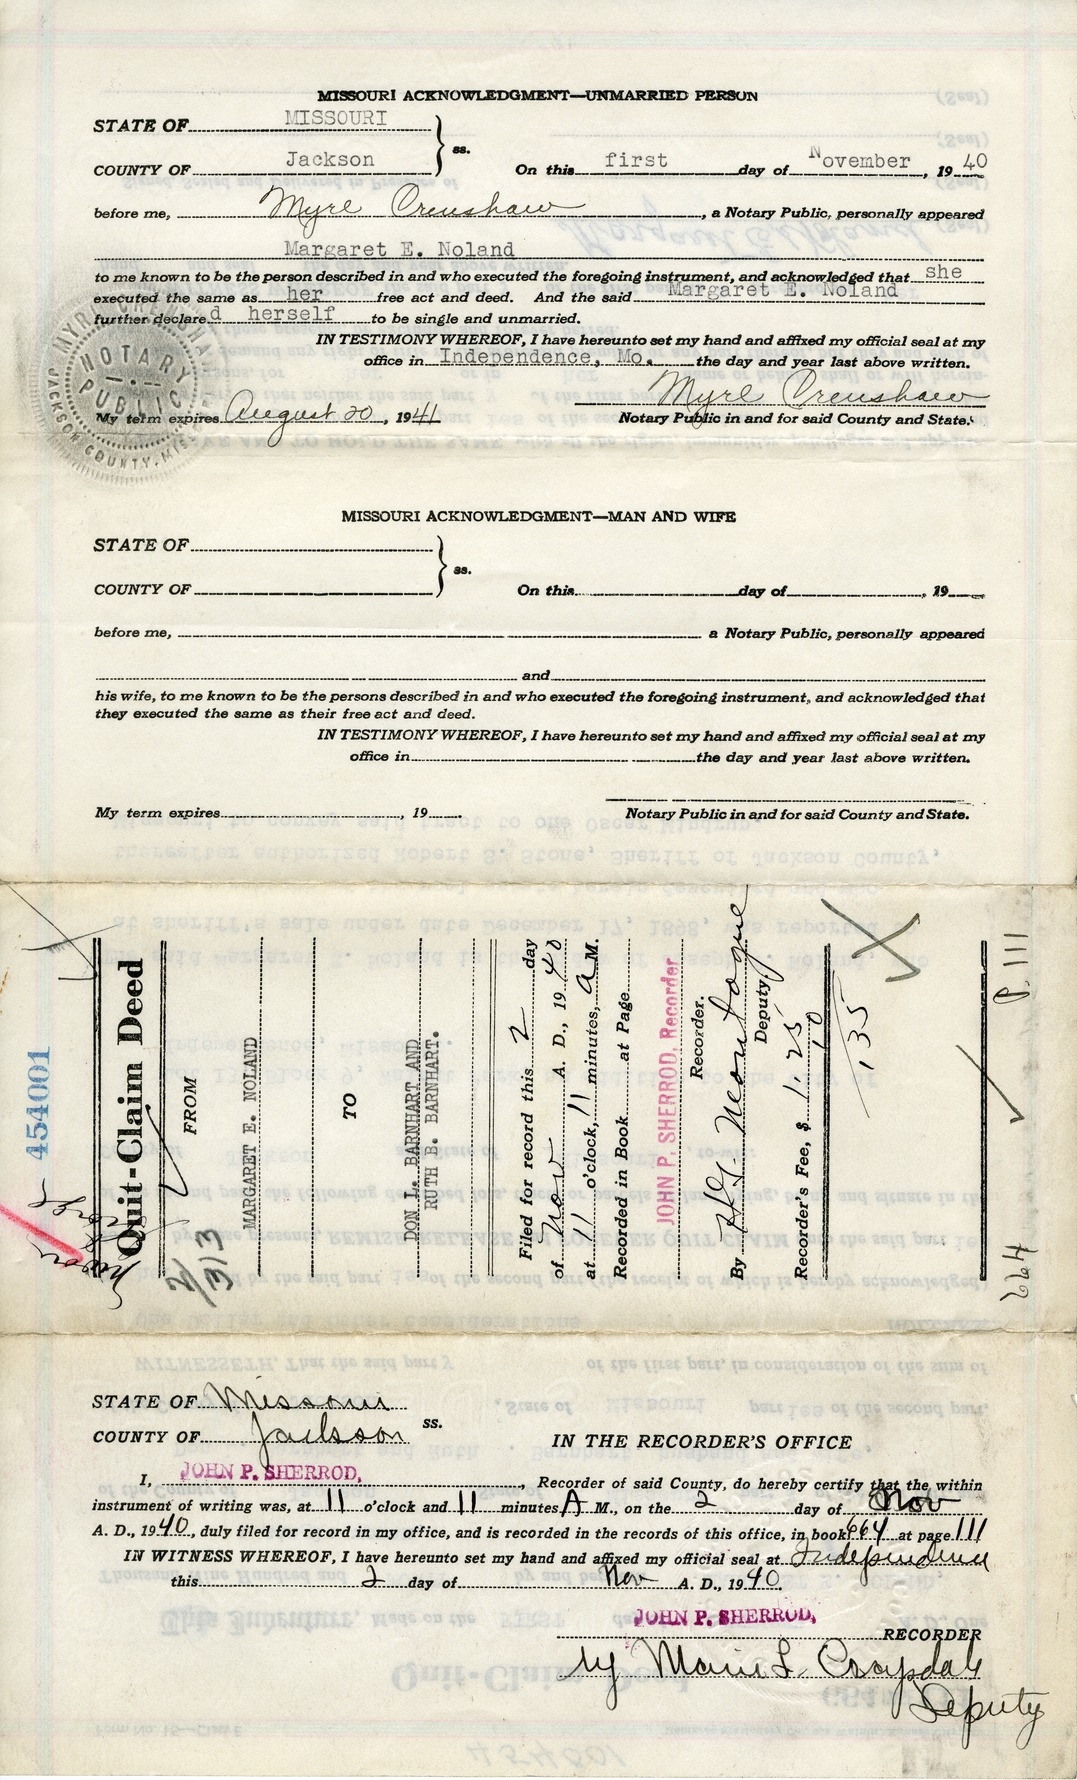 MISSOURI ACKNOWLEDGMENT—UNMARRIED PERSON
STATE OF MISSOURI
COUNTY OF Jackson ss. On this first day of November, 1940
before me, Myrl Crenshaw, a Notary Public, personally appeared
Margaret E. Noland
to me known to be the person described in and who executed the foregoing instrument, and acknowledged that she
executed the same as her free act and deed. And the said Margaret E. Noland
further declared herself to be single and unmarried.
IN TESTIMONY WHEREOF, I have hereunto set my hand and affixed my official seal at my
office in Independence, Mo. the day and year last above written.
Myrl Crenshaw
My term expires August 20, 1941 Notary Public in and for said County and State.
MYRL CRENSHAW
NOTARY
PUBLIC
JACKSON COUNTY, MISSOURI
MISSOURI ACKNOWLEDGMENT—MAN AND WIFE
STATE OF
COUNTY OF ss. On this day of , 19
before me, a Notary Public, personally appeared
and
his wife, to me known to be the persons described in and who executed the foregoing instrument, and acknowledged that
they executed the same as their free act and deed.
IN TESTIMONY WHEREOF, I have hereunto set my hand and affixed my official seal at my
office in the day and year last above written.
My term expires , 19 . Notary Public in and for said County and State.
454001
Quit-Claim Deed
FROM
MARGARET E. NOLAND
TO
DON L. BARNHART AND
RUTH B. BARNHART.
Filed for record this 2 day
of Nov A. D., 1940
at 11 o'clock, 11 minutes, A M.
Recorded in Book at Page
JOHN P. SHERROD, Recorder
Recorder.
By H.G. Montague
Deputy
Recorder's Fee, $ 1.25
10
1 35
664 P. 111
STATE OF Missouri
COUNTY OF Jackson ss.
IN THE RECORDER'S OFFICE
I, JOHN P. SHERROD, , Recorder of said County, do hereby certify that the within
instrument of writing was, at 11 o'clock and 11 minutes A M., on the 2 day of Nov
A. D., 1940, duly filed for record in my office, and is recorded in the records of this office, in book 664 at page 111
IN WITNESS WHEREOF, I have hereunto set my hand and affixed my official seal at Independence
this 2 day of Nov A. D., 1940.
JOHN P. SHERROD,
RECORDER
by Marie L. Croysdale
Deputy